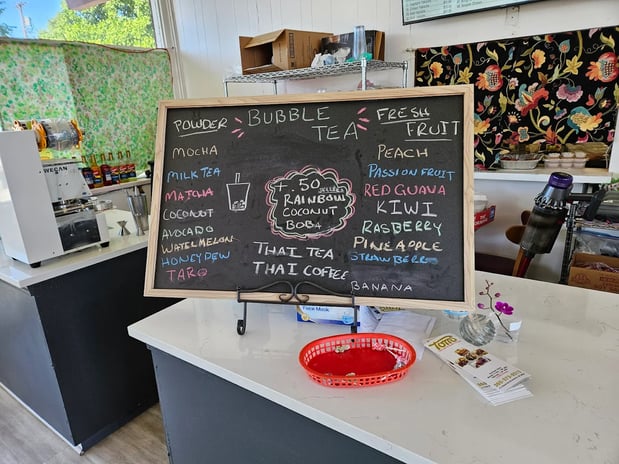 BUBBLE TEA
POWDER
MOCHA
MILK TEA
MATCHA
COCONUT
AVOCADO
WATELMELON
HONEYDEW
TARO
+.50 JELLIES
RAINBOW
COCONUT
BOBA
THAI TEA
THAI COFFEE
FRESH
FRUIT
PEACH
PASSION FRUIT
RED GUAVA
KIWI
RASBERRY
PINEAPPLE
STRAWBERRY
BANANA
WEGAN
Face Mask